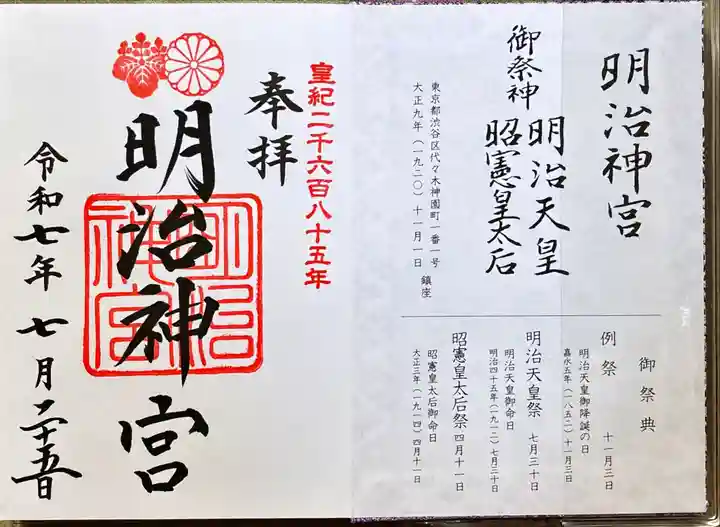 明治神宮
御祭神
明治天皇
昭憲皇太后
東京都渋谷区代々木神園町一番一号
大正九年（一九二〇）十一月一日 鎮座
御祭典
例祭 十一月三日
明治天皇御降誕の日
嘉永五年（一八五二）十一月三日
明治天皇祭 七月三十日
明治天皇御命日
明治四十五年（一九一二）七月三十日
昭憲皇太后祭 四月十一日
昭憲皇太后御命日
大正三年（一九一四）四月十一日
皇紀二千六百八十五年
奉拝
明治神宮
明治神宮
令和七年七月二十五日